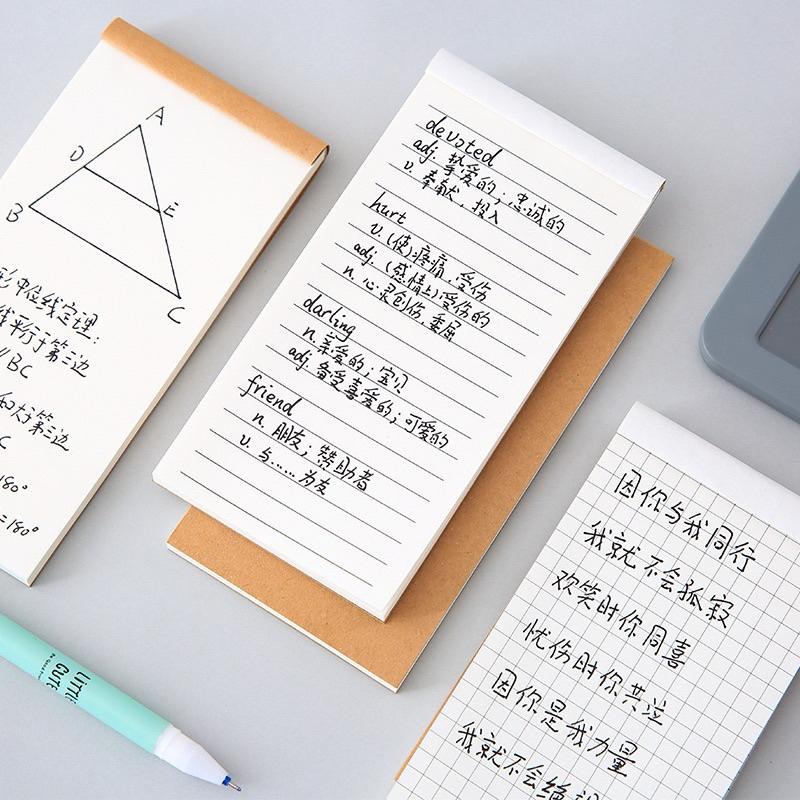 A
D
E
B
C
形中位线定理:
线平行于第三边
∥BC
和大于第三边
C
180°
=180°
devoted
adj. 挚爱的；忠诚的
v. 奉献，投入
hurt
v. (使)疼痛,受伤
adj. (感情上)受伤的
n. 心灵创伤,委屈
darling
n. 亲爱的；宝贝
adj. 备受喜爱的；可爱的
friend
n. 朋友；赞助者
v. 与……为友
因你与我同行
我就不会孤寂
欢笑时你同喜
忧伤时你共泣
因你是我力量
我就不会绝
LITTLE
CUTE